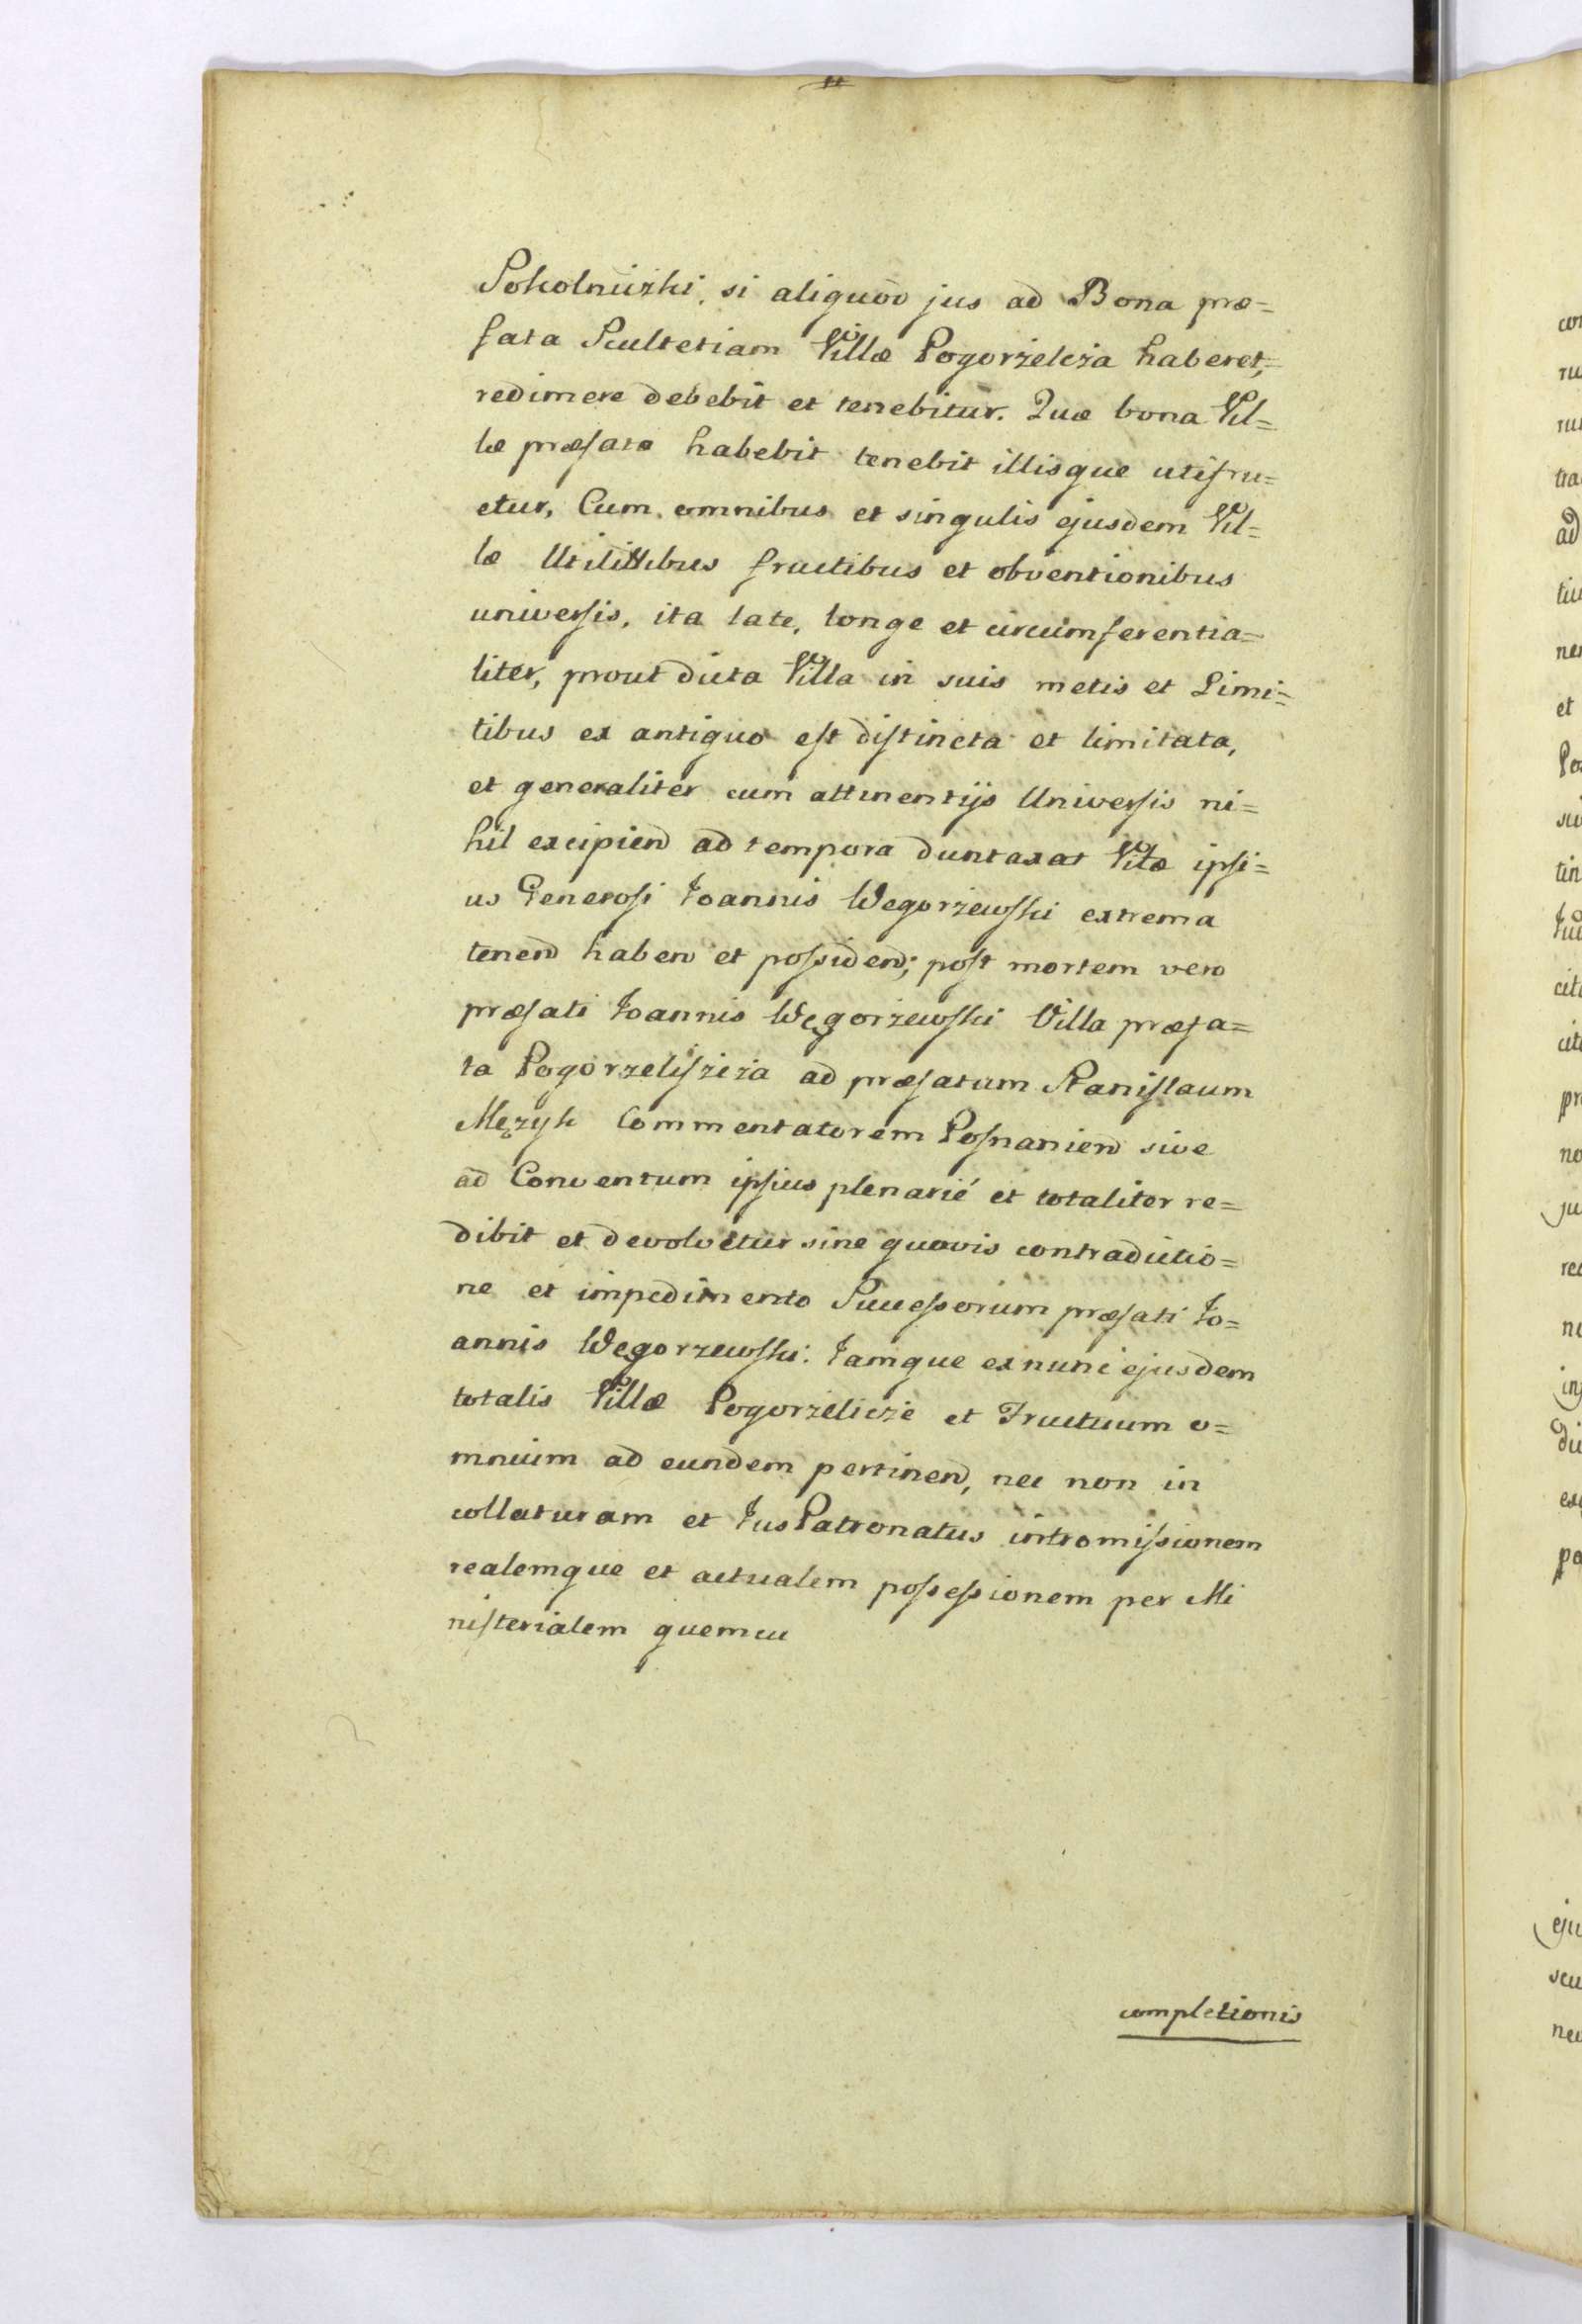 Sokolniczki, si aliquod jus ad Bona præ=
fata Scultetiam Villæ Pogorżelcza haberet,=
redimere debebit et tenebitur. Quæ bona Vil=
læ præfatæ habebit tenebit illisque utifru=
etur, Cum omnibus et singulis ejusdem Vil=
læ Utilittibus fructibus et obventionibus
universis, ita late, longe et circumferentia=
liter, prout dicta Villa in suis metis et Limi=
tibus ex antiquo est distincta et limitata,
et generaliter cum attinentijs Universis ni=
hil excipiend ad tempora duntaxat Vitæ ipsi=
us Generosi Joannis Wegorżewski extrema
tenend habend et possidend; post mortem vero
præfati Joannis Węgorżewski Villa præfa=
ta Pogorzeliszcza ad præfatum Stanislaum
Męzyk Commentatorem Posnaniend sive
ad Conventum ipsius plenarié et totaliter re=
dibit et devolvetur sine quovis contradictio=
ne et impedimento Successorum præfati Jo=
annis Wegorzewski. Jamque ex nunc ejusdem
totalis Villæ Pogorżelicże et Fructuum o=
mnium ad eundem pertinend, nec non in
collaturam et Jus Patronatus intromissionem
realemque et actualem possessionem per Mi
nisterialem quemcu
completionis